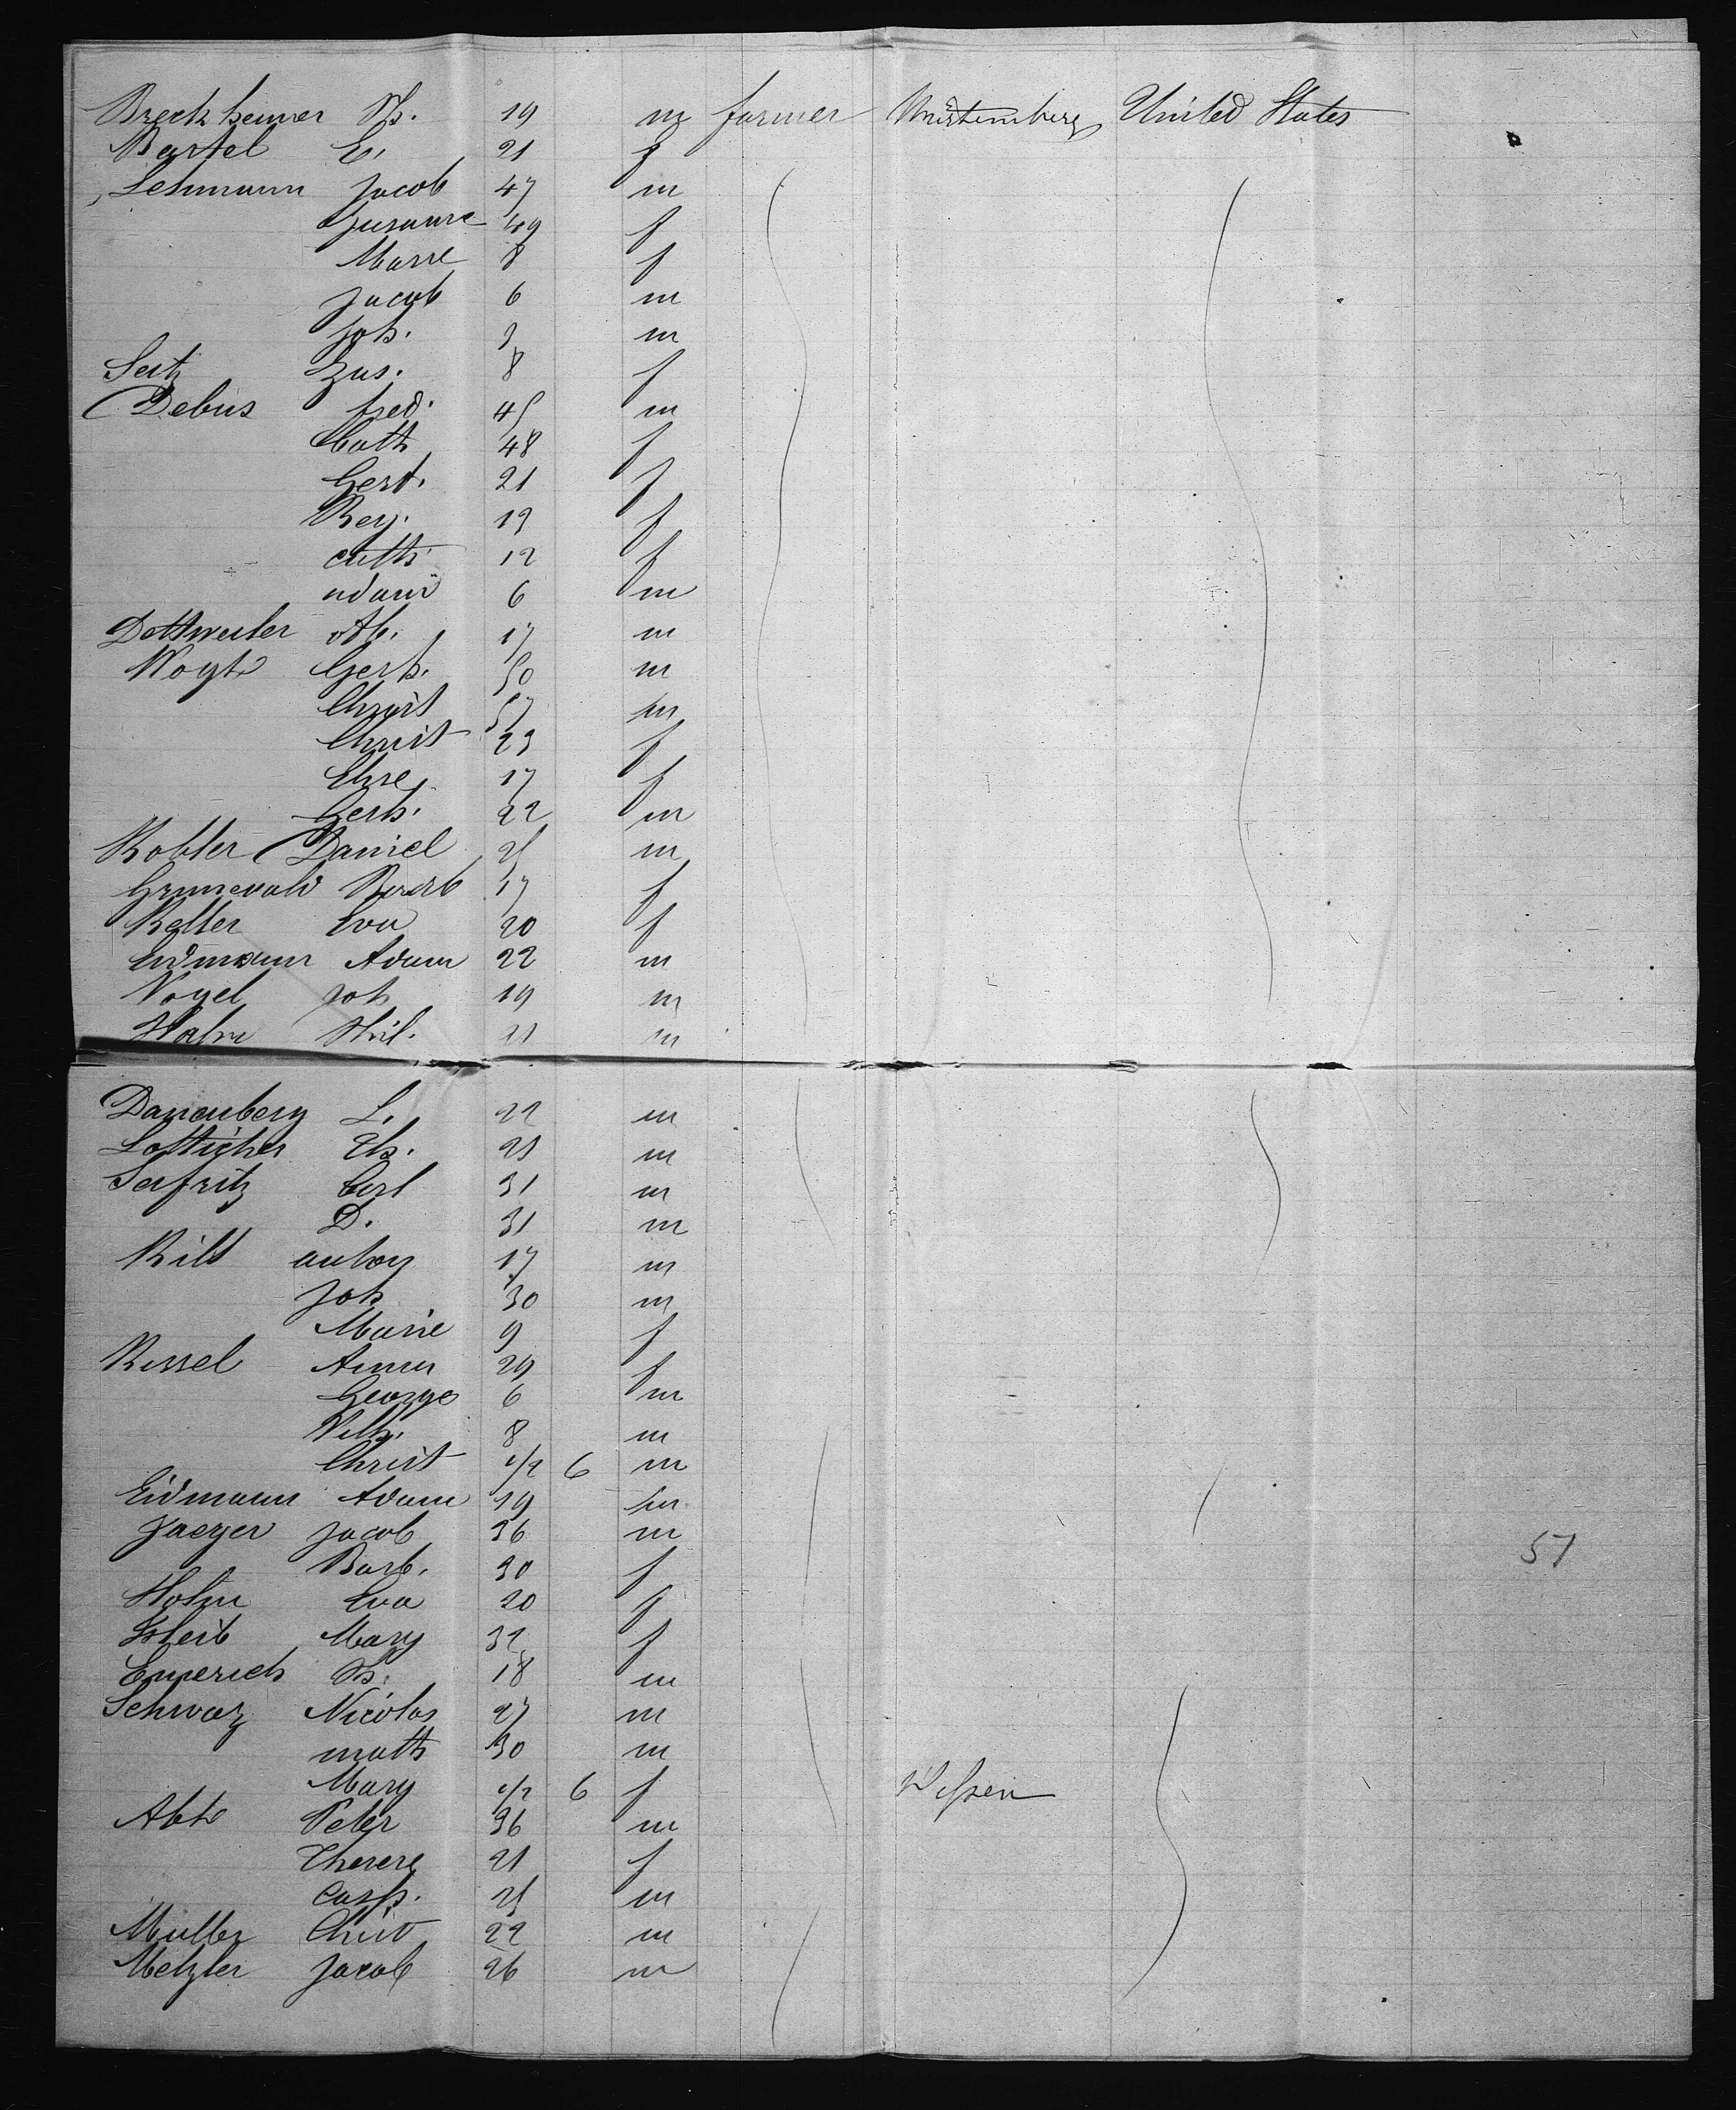 Breckheimer Ph. 19 m farmer Würtemberg United States
Bartel E. 21 f
Lehmann Jacob 47 m
Susanne 49 f
Marie 8 f
Jacob 6 m
Joh. 3 m
Seitz Sus. 8 f
Debus fred. 45 m
Cath 48 f
Gert. 21 f
Reg. 19 f
cath 12 f
adam 6 m
Dettweiler 17 m
Vogt Gerh. 50 m
Christ 57 m
Christ 23 f
17 f
Gerh. 22 m
Kobler Daniel 25 m
Grunewald Barb 17 f
Keller Eva 20 f
Eidmann Adam 22 m
Vogel Joh 19 m
Hahn Phil. 21 m
Danenberg L. 22 m
Lotticher 21 m
Seifritz Carl 31 m
D. 31 m
Kilt anton 17 m
Joh 30 m
Marie 9 f
Kissel Anna 29 f
George 6 m
Wilh. 8 m
Christ 1/2 6 m
Eidmann Adam 19 m
Jaeger Jacob 36 m
Barb. 30 f 57
Hohn Eva 20 f
Mary 32 f
Emerich 18 m
Schwarz Nicolas 27 m
math 30 m
Mary 1/2 6 f
Abt Peter 36 m
Therese 21 f
Casp. 25 m
Muller Christ 22 m
Metzler Jacob 26 m